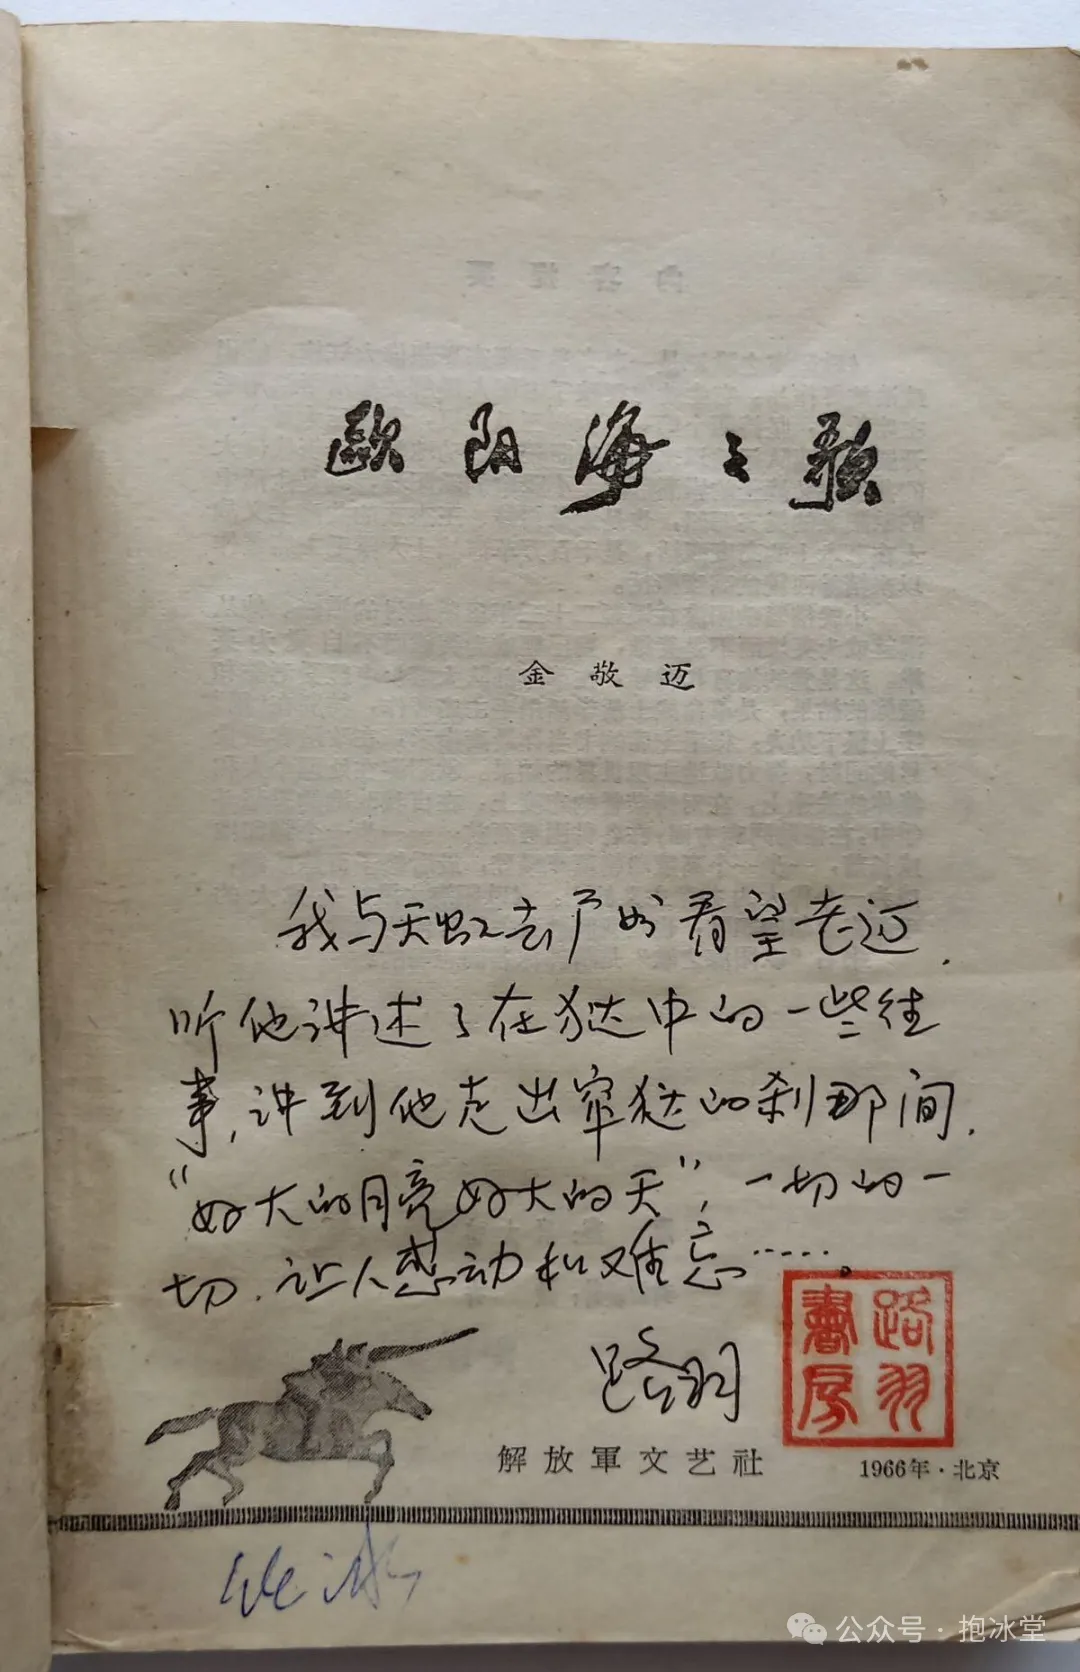 欧阳海之歌
金敬迈
我与天虹去广州看望老迈，
听他讲述了在狱中的一些往
事，讲到他走出牢狱的刹那间，
“好大的月亮好大的天”，一切的一
切，让人感动和难忘……。
路羽
路羽書房
解放軍文艺社
1966年·北京
公众号·抱冰堂